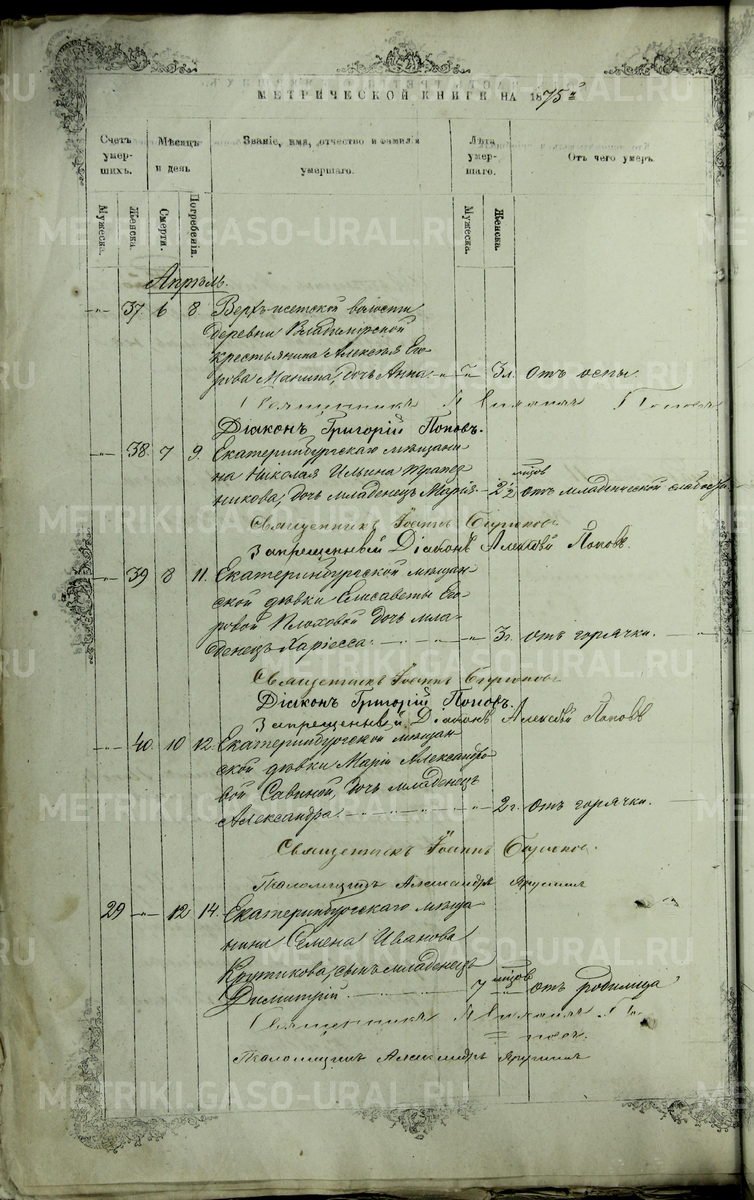 МЕТРИЧЕСКОЙ КНИГИ НА 1875й
Счетъ умер-шихъ.
Мѣсяцъ и день
Званіе, имя, отчество и фамилія умершаго.
Лѣта умер-шаго.
Отъ чего умеръ.
Мужеска.
Женска.
Смерти.
Погребенія.
Мужеска.
Женска.
Апрѣль.
37 6 8 Верхъ-исетской волости
деревни Владимірской
крестьянина Алексѣя Его-
рова Манина, дочь Анна 3 л. отъ оспы
Священникъ Поповъ
Діаконъ Григорій Поповъ.
38. 7 9. Екатеринбургскаго мѣщани-
на Николая Ильина Трапез
никова, дочь младенецъ Марія 2 1/2 отъ младенческой слабости
Священникъ Іоаннъ
Запрещенный Діаконъ Алексѣй Поповъ.
39 8 11. Екатеринбургской мѣщан-
ской дѣвки Елисаветы Его-
ровой Плоховой дочь мла-
денецъ Хариесса 3 г. отъ горячки.
Священникъ Іоаннъ
Діаконъ Григорій Поповъ.
Запрещенный Діаконъ Алексѣй Поповъ
40. 10 12. Екатеринбургской мѣщан
ской дѣвки Маріи Александро
вой Савиной, дочь младенецъ
Александра 2 г. отъ горячки.
Священникъ Іоаннъ
Псаломщикъ Александръ
29 12 14. Екатеринбургскаго мѣща
нина Семена Иванова
Крутикова, сынъ младенецъ
Димитрій 7 отъ родимца
Священникъ
Псаломщикъ Александръ
METRIKI.GASO-URAL.RU